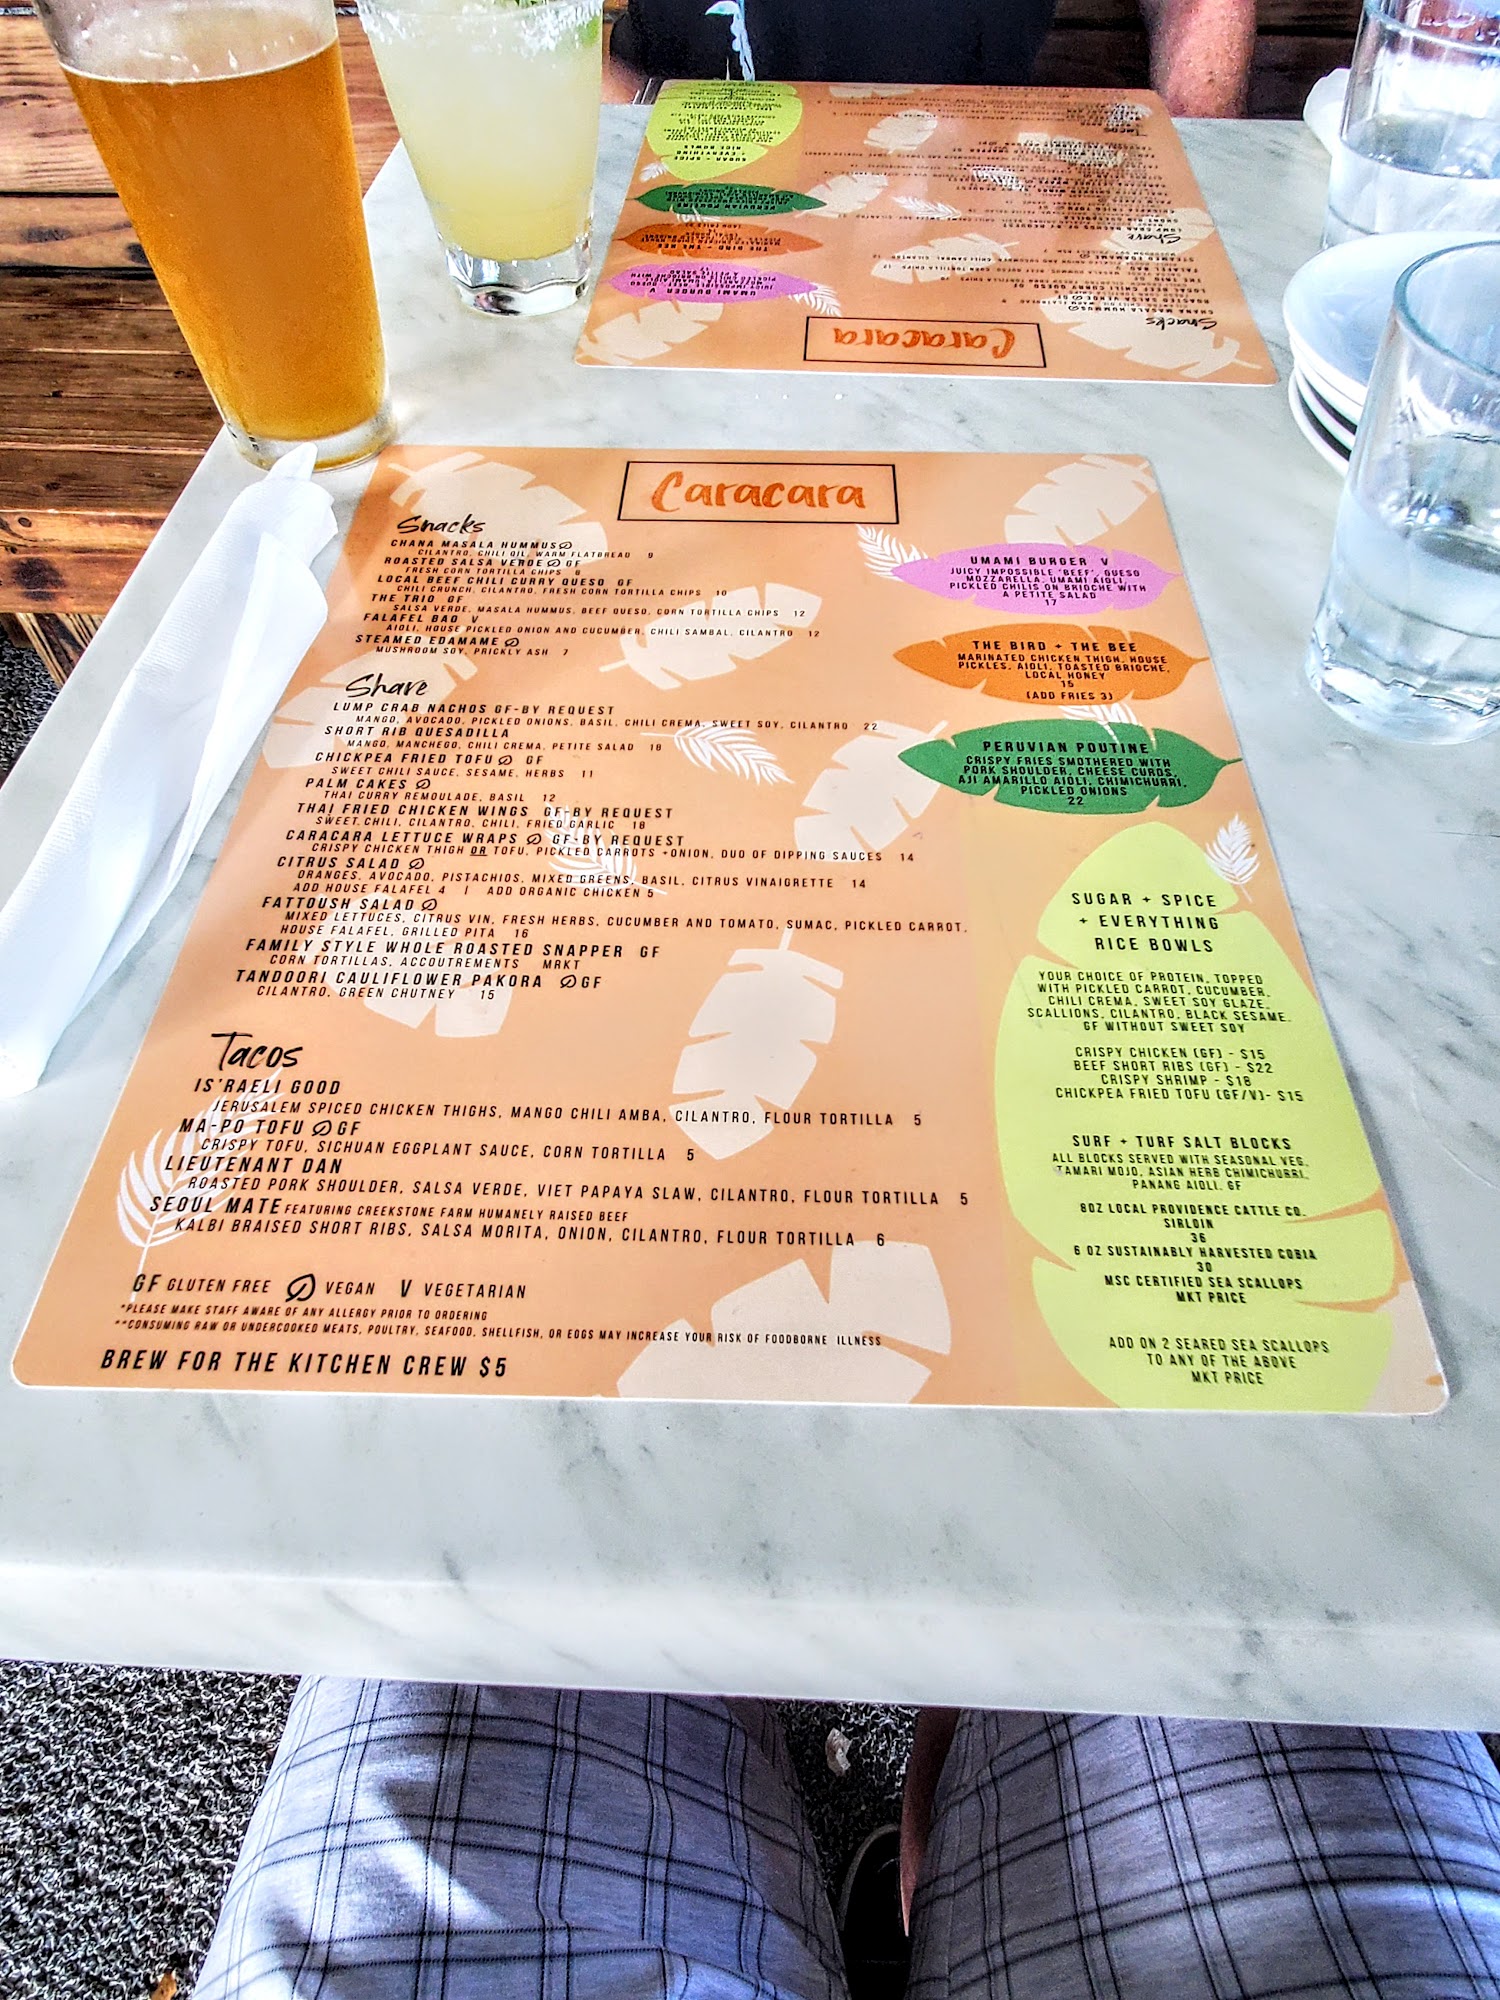 Caracara
Snacks
CHANA MASALA HUMMUS
CILANTRO, CHILI OIL, WARM FLATBREAD 9
ROASTED SALSA VERDE GF
FRESH CORN TORTILLA CHIPS 6
LOCAL BEEF CHILI CURRY QUESO GF
CHILI CRUNCH, CILANTRO, FRESH CORN TORTILLA CHIPS 10
THE TRIO GF
SALSA VERDE, MASALA HUMMUS, BEEF QUESO, CORN TORTILLA CHIPS 12
FALAFEL BAO V
AIOLI, HOUSE PICKLED ONION AND CUCUMBER, CHILI SAMBAL, CILANTRO 12
STEAMED EDAMAME
MUSHROOM SOY, PRICKLY ASH 7
Share
LUMP CRAB NACHOS GF-BY REQUEST
MANGO, AVOCADO, PICKLED ONIONS, BASIL, CHILI CREMA, SWEET SOY, CILANTRO 22
SHORT RIB QUESADILLA
MANGO, MANCHEGO, CHILI CREMA, PETITE SALAD 18
CHICKPEA FRIED TOFU GF
SWEET CHILI SAUCE, SESAME, HERBS 11
PALM CAKES
THAI CURRY REMOULADE, BASIL 12
THAI FRIED CHICKEN WINGS GF-BY REQUEST
SWEET CHILI, CILANTRO, CHILI, FRIED GARLIC 18
CARACARA LETTUCE WRAPS GF-BY REQUEST
CRISPY CHICKEN THIGH OR TOFU, PICKLED CARROTS +ONION, DUO OF DIPPING SAUCES 14
CITRUS SALAD
ORANGES, AVOCADO, PISTACHIOS, MIXED GREENS, BASIL, CITRUS VINAIGRETTE 14
ADD HOUSE FALAFEL 4 | ADD ORGANIC CHICKEN 5
FATTOUSH SALAD
MIXED LETTUCES, CITRUS VIN, FRESH HERBS, CUCUMBER AND TOMATO, SUMAC, PICKLED CARROT,
HOUSE FALAFEL, GRILLED PITA 16
FAMILY STYLE WHOLE ROASTED SNAPPER GF
CORN TORTILLAS, ACCOUTREMENTS MRKT
TANDOORI CAULIFLOWER PAKORA GF
CILANTRO, GREEN CHUTNEY 15
Tacos
IS'RAELI GOOD
JERUSALEM SPICED CHICKEN THIGHS, MANGO CHILI AMBA, CILANTRO, FLOUR TORTILLA 5
MA-PO TOFU GF
CRISPY TOFU, SICHUAN EGGPLANT SAUCE, CORN TORTILLA 5
LIEUTENANT DAN
ROASTED PORK SHOULDER, SALSA VERDE, VIET PAPAYA SLAW, CILANTRO, FLOUR TORTILLA 5
SEOUL MATE FEATURING CREEKSTONE FARM HUMANELY RAISED BEEF
KALBI BRAISED SHORT RIBS, SALSA MORITA, ONION, CILANTRO, FLOUR TORTILLA 6
GF GLUTEN FREE VEGAN V VEGETARIAN
*PLEASE MAKE STAFF AWARE OF ANY ALLERGY PRIOR TO ORDERING
**CONSUMING RAW OR UNDERCOOKED MEATS, POULTRY, SEAFOOD, SHELLFISH, OR EGGS MAY INCREASE YOUR RISK OF FOODBORNE ILLNESS
BREW FOR THE KITCHEN CREW $5
UMAMI BURGER V
JUICY IMPOSSIBLE 'BEEF', QUESO
MOZZARELLA, UMAMI AIOLI,
PICKLED CHILIS ON BRIOCHE WITH
A PETITE SALAD
17
THE BIRD + THE BEE
MARINATED CHICKEN THIGH, HOUSE
PICKLES, AIOLI, TOASTED BRIOCHE,
LOCAL HONEY
15
(ADD FRIES 3)
PERUVIAN POUTINE
CRISPY FRIES SMOTHERED WITH
PORK SHOULDER, CHEESE CURDS,
AJI AMARILLO AIOLI, CHIMICHURRI,
PICKLED ONIONS
22
SUGAR + SPICE
+ EVERYTHING
RICE BOWLS
YOUR CHOICE OF PROTEIN, TOPPED
WITH PICKLED CARROT, CUCUMBER,
CHILI CREMA, SWEET SOY GLAZE,
SCALLIONS, CILANTRO, BLACK SESAME.
GF WITHOUT SWEET SOY
CRISPY CHICKEN (GF) - $15
BEEF SHORT RIBS (GF) - $22
CRISPY SHRIMP - $18
CHICKPEA FRIED TOFU (GF/V)- $15
SURF + TURF SALT BLOCKS
ALL BLOCKS SERVED WITH SEASONAL VEG,
TAMARI MOJO, ASIAN HERB CHIMICHURRI,
PANANG AIOLI. GF
8OZ LOCAL PROVIDENCE CATTLE CO.
SIRLOIN
36
6 OZ SUSTAINABLY HARVESTED COBIA
30
MSC CERTIFIED SEA SCALLOPS
MKT PRICE
ADD ON 2 SEARED SEA SCALLOPS
TO ANY OF THE ABOVE
MKT PRICE
Caracara
Snacks
Share
Tacos
UMAMI BURGER V
THE BIRD + THE BEE
PERUVIAN POUTINE
SUGAR + SPICE
+ EVERYTHING
RICE BOWLS